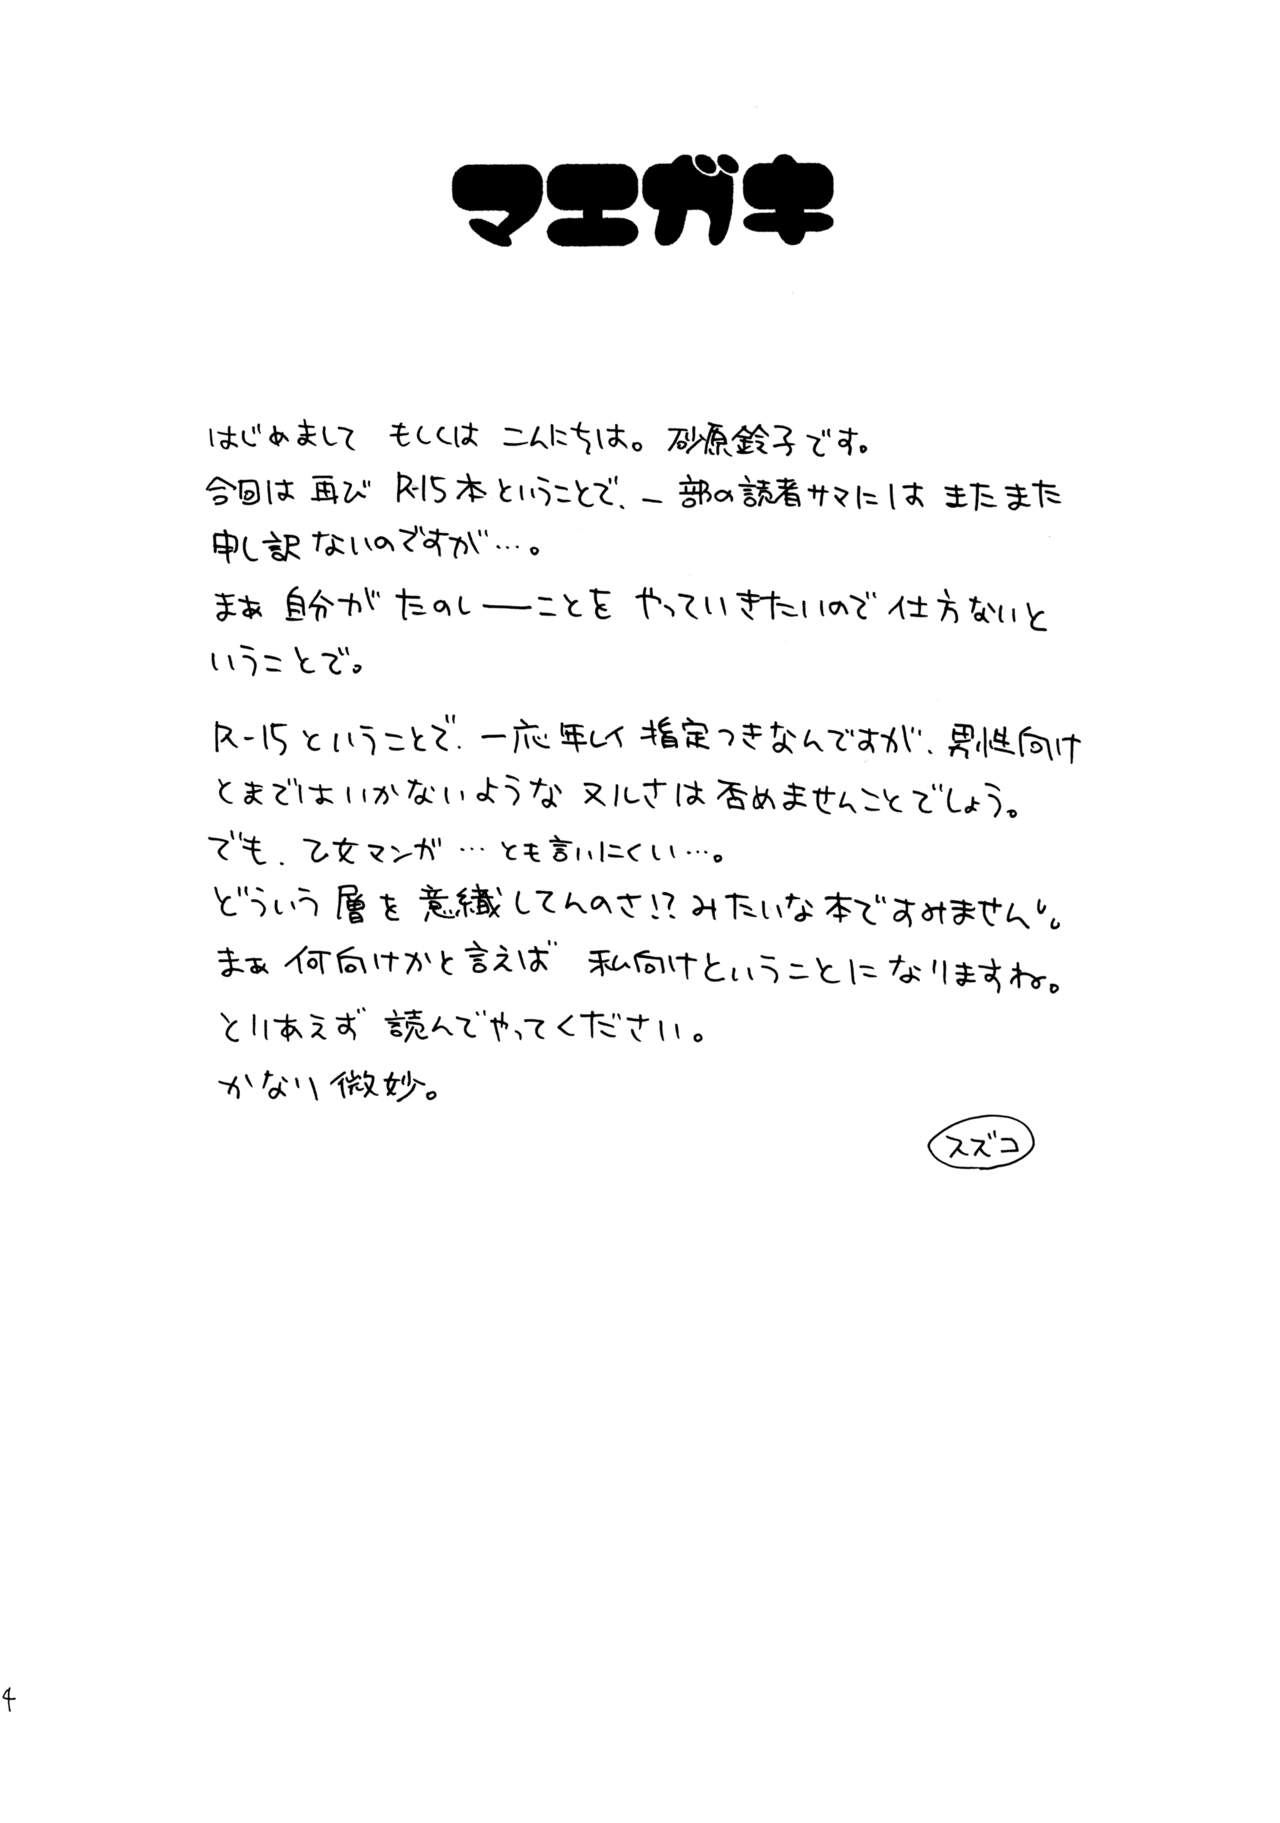 マエガキ
はじめまして もしくは こんにちは。砂原鈴子です。
今回は 再び R-15本ということで、一部の読者サマには またまた
申し訳ないのですが…。
まぁ 自分が たのしーことを やっていきたいので 仕方ないと
いうことで。
R-15ということで、一応年レイ指定つきなんですが、男性向け
とまではいかないような ヌルさは否めませんことでしょう。
でも、乙女マンガ…とも言いにくい…。
どういう層を意識してんのさ!?みたいな本ですみません。
まぁ 何向けかと言えば 私向けということになりますね。
とりあえず 読んでやってください。
かなり微妙。
スズコ
4